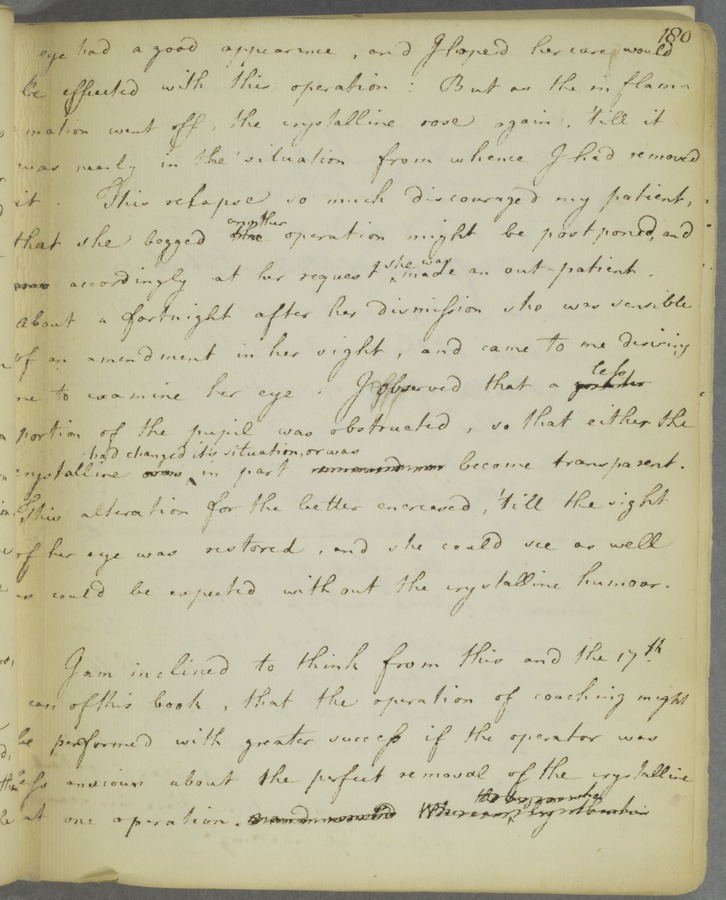 180
eye had a good appearance, and I hoped her cure would
be effected with this operation: But as the inflam-
mation went off, the crystalline rose again, 'till it
was nearly in the situation from whence I had removed
it. This relapse so much discouraged my patient,
another
that she begged the operation might be postponed, and
she was
accordingly at her request made an out-patient.
About a fortnight after her dismission she was sensible
of an amendment in her sight, and came to me desiring
less
me to examine her eye. I observed that a greater
portion of the pupil was obstructed, so that either the
had changed its situation, or was
crystalline was in part become transparent.
This alteration for the better encreased, 'till the sight
of her eye was restored, and she could see as well
as could be expected without the crystalline humour.
I am inclined to think from this and the 17th.
case of this book, that the operation of couching might
be performed with greater success if the operator was
less anxious about the perfect removal of the crystalline
at one operation.